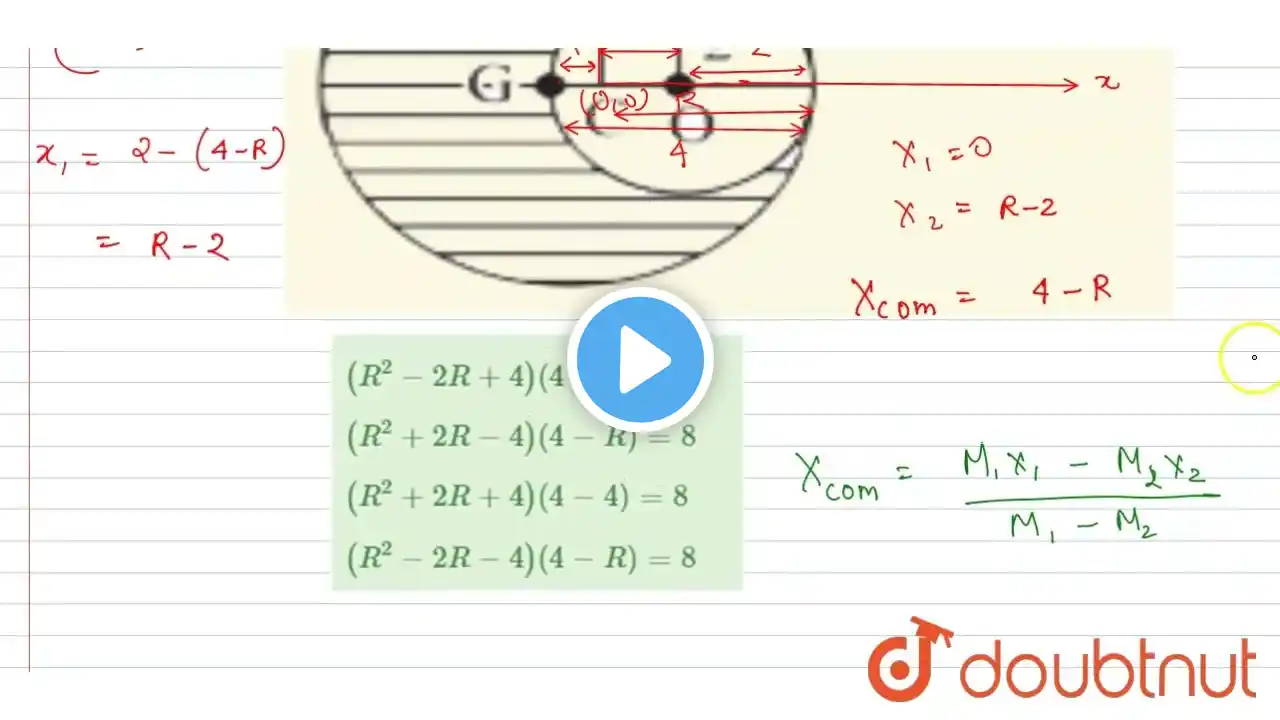 2
G
x
(0,0) R
C O
4
x₁ = 2 - (4-R)
= R - 2
x₁ = 0
x₂ = R-2
Xcom = 4 - R
(R² − 2R + 4)(4
(R² + 2R − 4)(4 − R) = 8
(R² + 2R + 4)(4 − 4) = 8
(R² − 2R − 4)(4 − R) = 8
Xcom = M₁x₁ - M₂x₂
M₁ - M₂
doubtnut